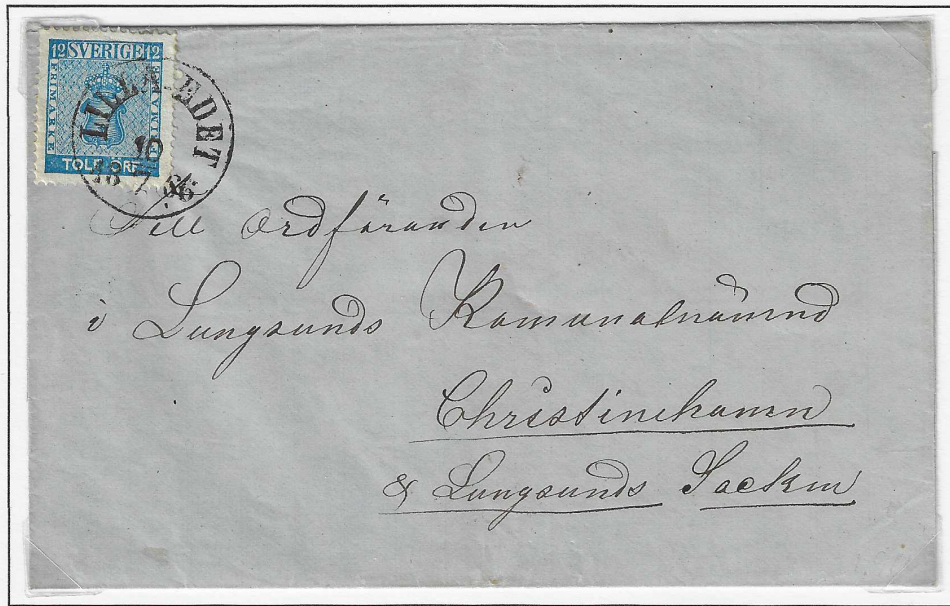 12 SVERIGE 12
FRIMÄRKE
TOLF ÖRE
LILLA EDET
10
18 66
Till Ordföranden
i Lungsunds Komunalnämnd
Christinehamn
& Lungsunds Socken